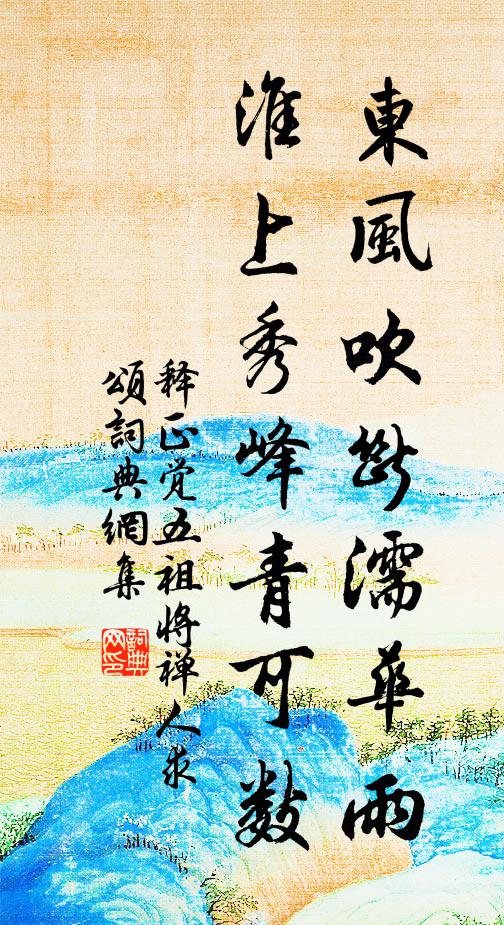 東風吹斷濡華雨
淮上秀峰青可數
释正觉五祖將禅人求
頌詞典網集
詞典網印